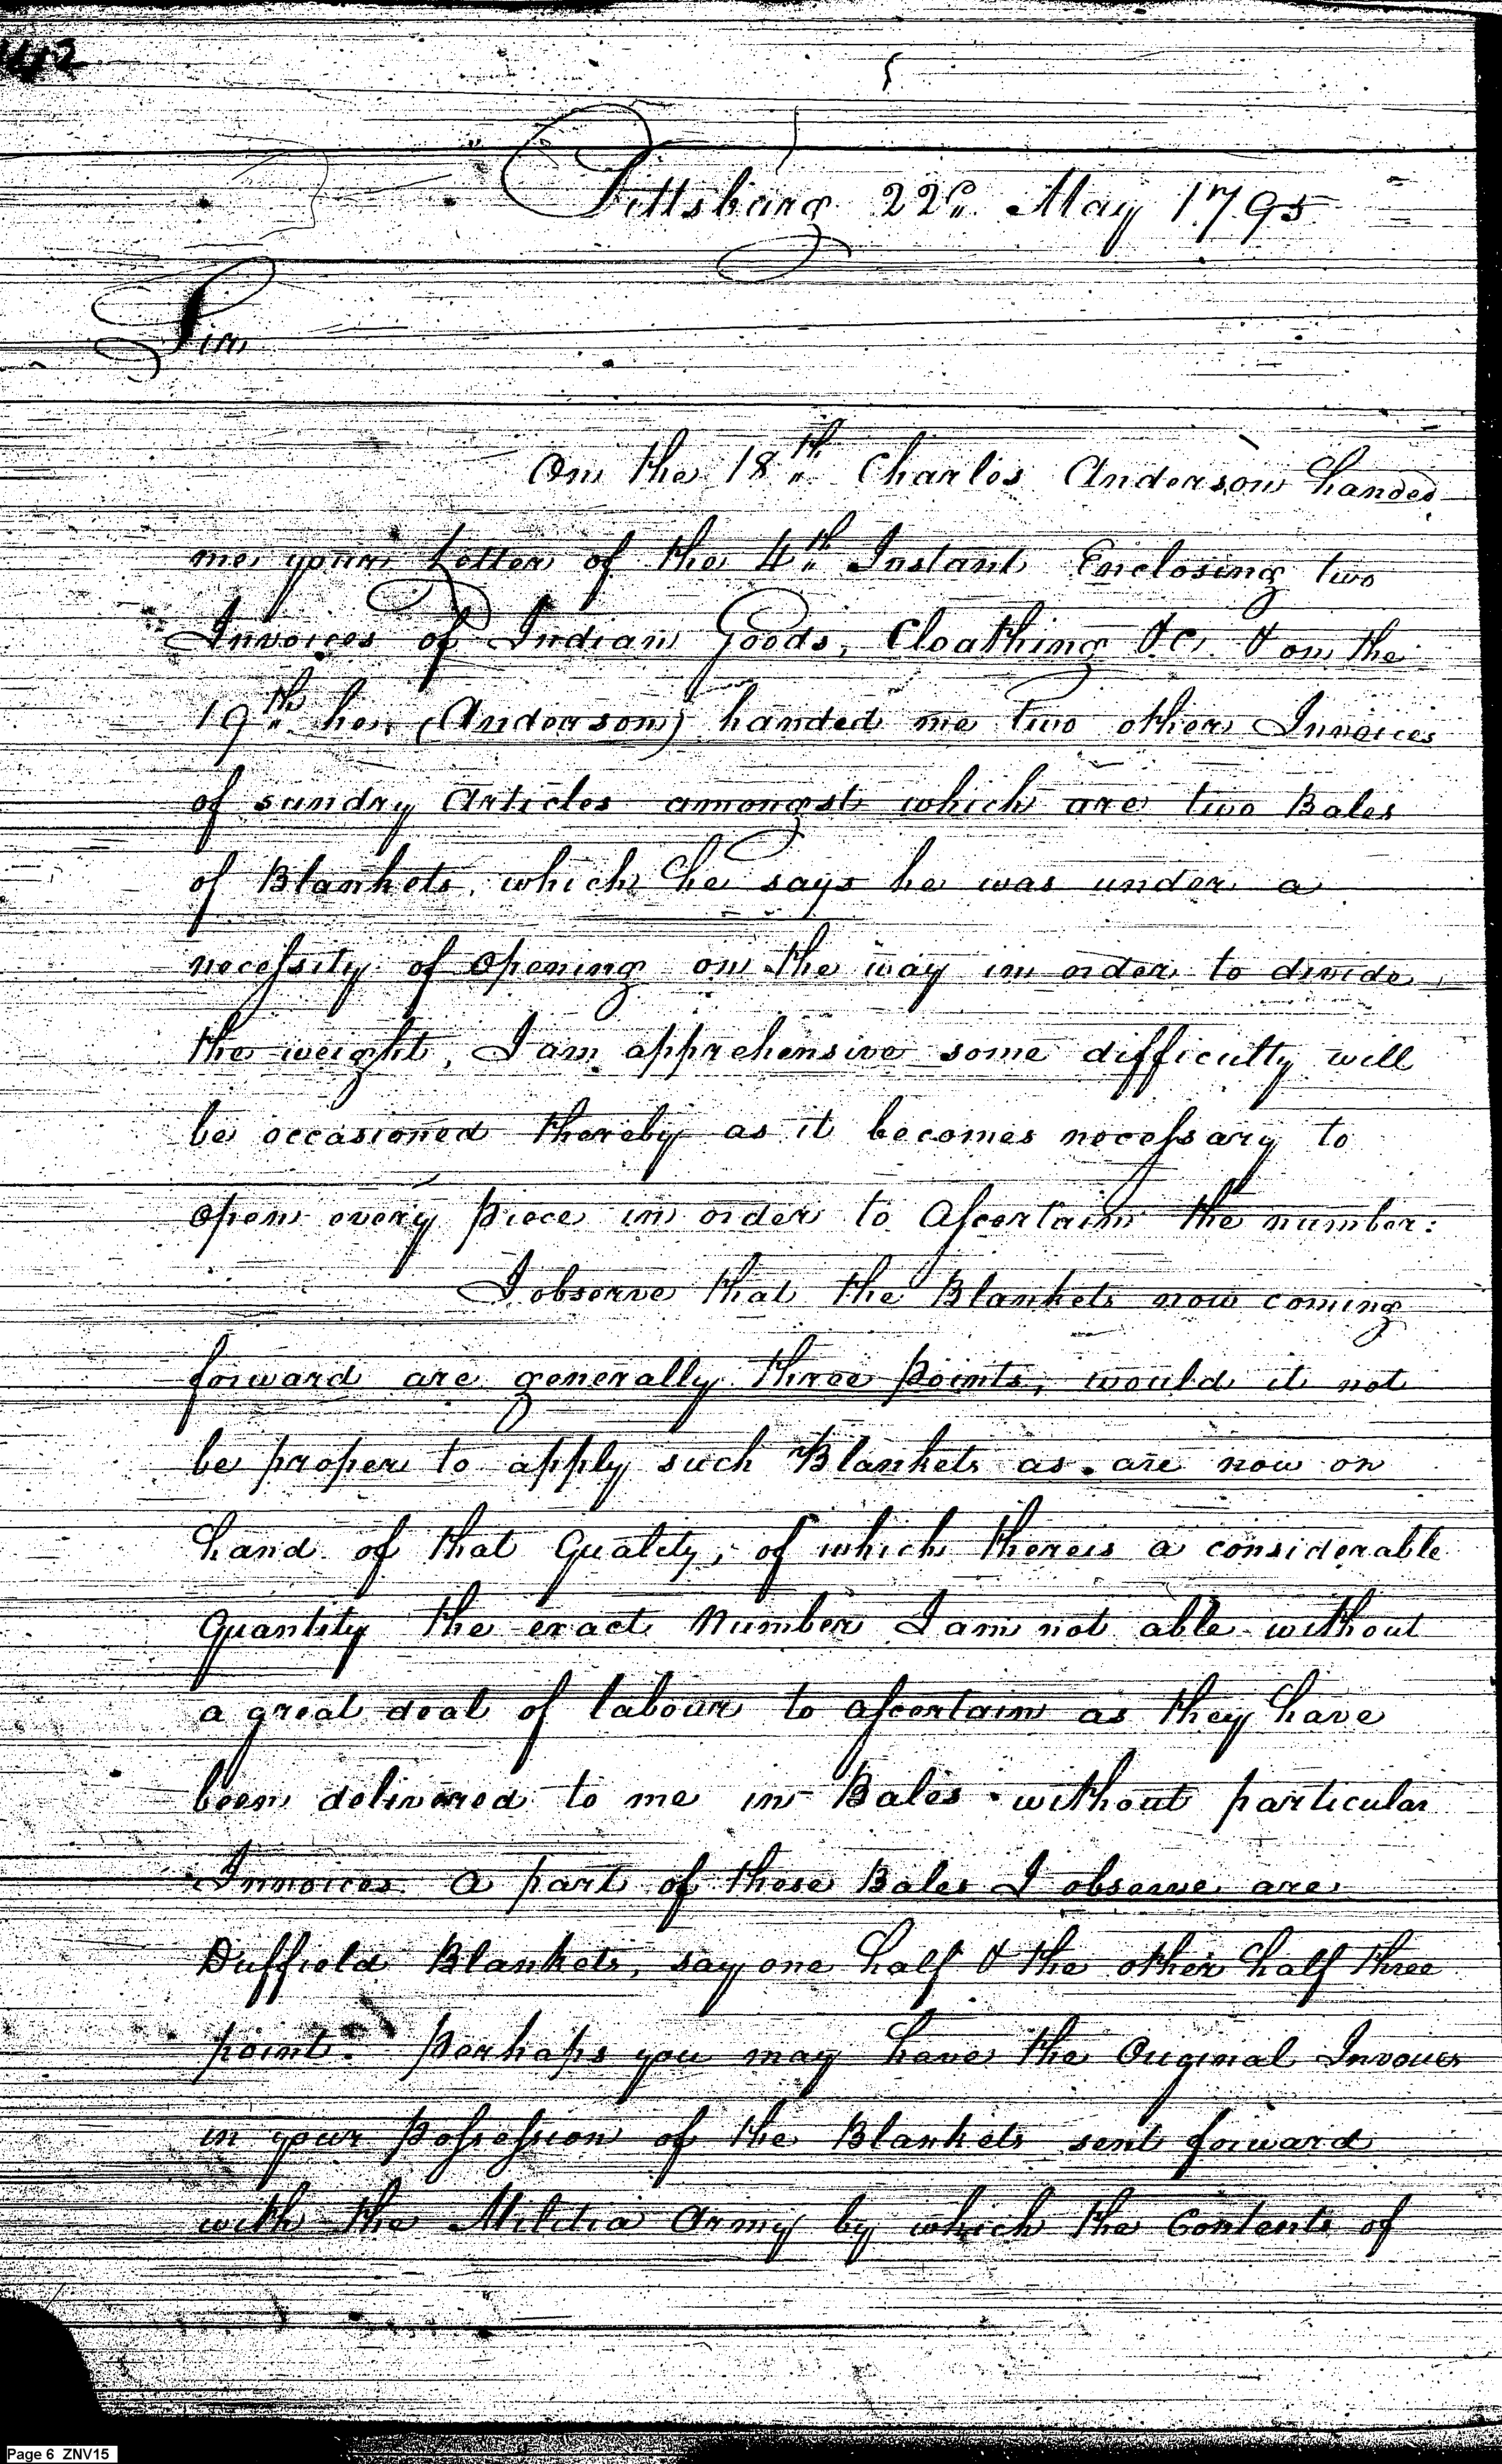 142
Pittsburg 22d May 1795
Sir
On the 18th Charles Anderson handed
me your Letter of the 4th Instant Enclosing two
Invoices of Indian Goods, Cloathing &c. & on the
19th he (Anderson) handed me two other Invoices
of sundry Articles amongst which are two Bales
of Blankets, which he says he was under a
necessity of opening on the way in order to divide
the weight, I am apprehensive some difficulty will
be occasioned thereby as it becomes necessary to
open every piece in order to Ascertain the number:
I observe that the Blankets now coming
forward are generally three points, would it not
be proper to apply such Blankets as are now on
hand of that Quality, of which there is a considerable
Quantity the exact Number I am not able without
a great deal of labour to ascertain as they have
been delivered to me in Bales without particular
Invoices. A part of these Bales I observe are
Duffield Blankets, say one half & the other half three
point. Perhaps you may have the Original Invoices
in your Possession of the Blankets sent forward
with the Militia Army by which the Contents of
Page 6 ZNV15